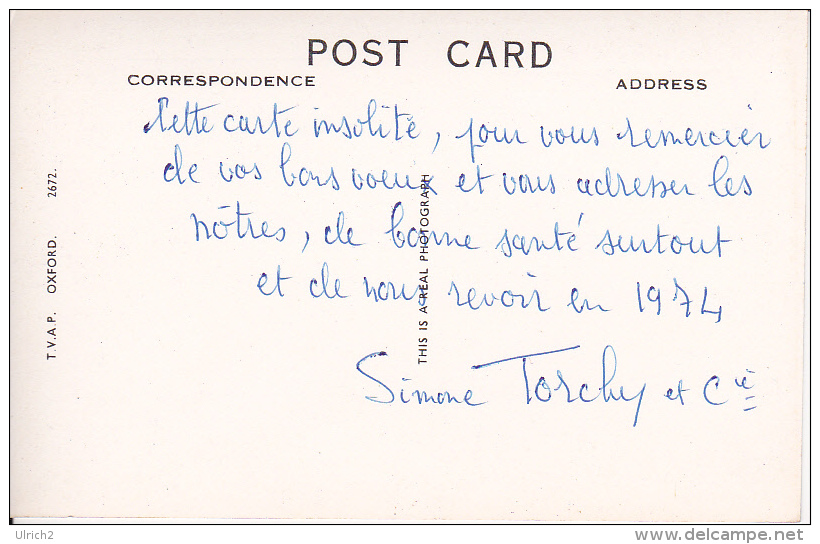 POST CARD
CORRESPONDENCE
ADDRESS
Cette carte insolité, pour vous remercier
de vos bons voeux et vous adresser les
nôtres, de bonne santé surtout
et de nous revoir en 1974
Simone Torchy et Cie
T.V.A.P. OXFORD. 2672.
THIS IS A REAL PHOTOGRAPH
Ulrich2
delcampe.net